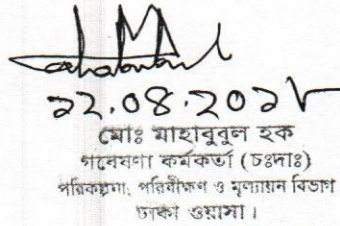 ১২.০৪.২০১৮
মোঃ মাহাবুবুল হক
গবেষণা কর্মকর্তা (চঃদাঃ)
পরিকল্পনা, পরিবীক্ষণ ও মূল্যায়ন বিভাগ
ঢাকা ওয়াসা।